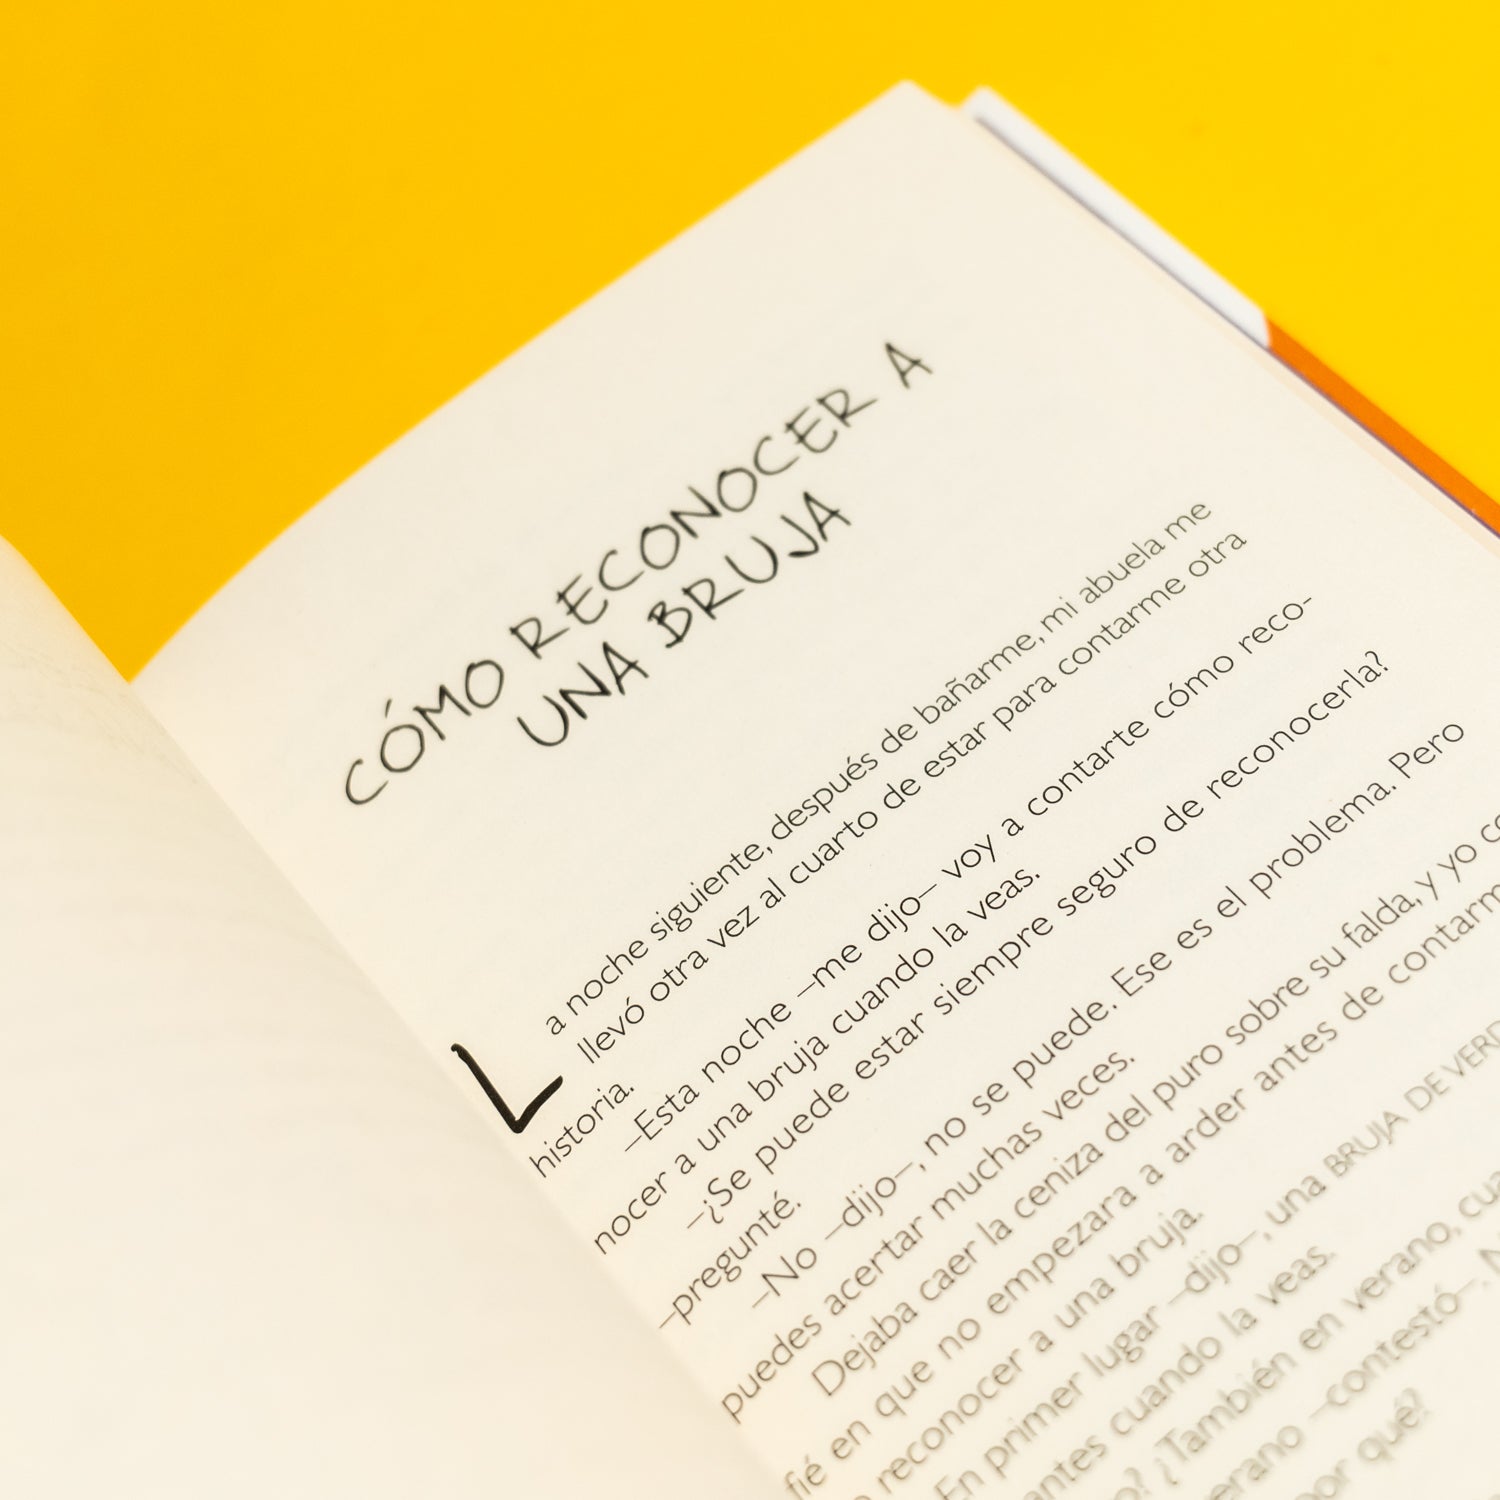 CÓMO RECONOCER A
UNA BRUJA
La noche siguiente, después de bañarme, mi abuela me
llevó otra vez al cuarto de estar para contarme otra
historia.
–Esta noche –me dijo– voy a contarte cómo reco-
nocer a una bruja cuando la veas.
–¿Se puede estar siempre seguro de reconocerla?
–pregunté.
–No –dijo–, no se puede. Ese es el problema. Pero
puedes acertar muchas veces.
Dejaba caer la ceniza del puro sobre su falda, y yo
en que no empezara a arder antes de
reconocer a una bruja.
En primer lugar –dijo–, una BRUJA DE
cuando la veas.
¿También en verano,
–contestó–.
por qué?